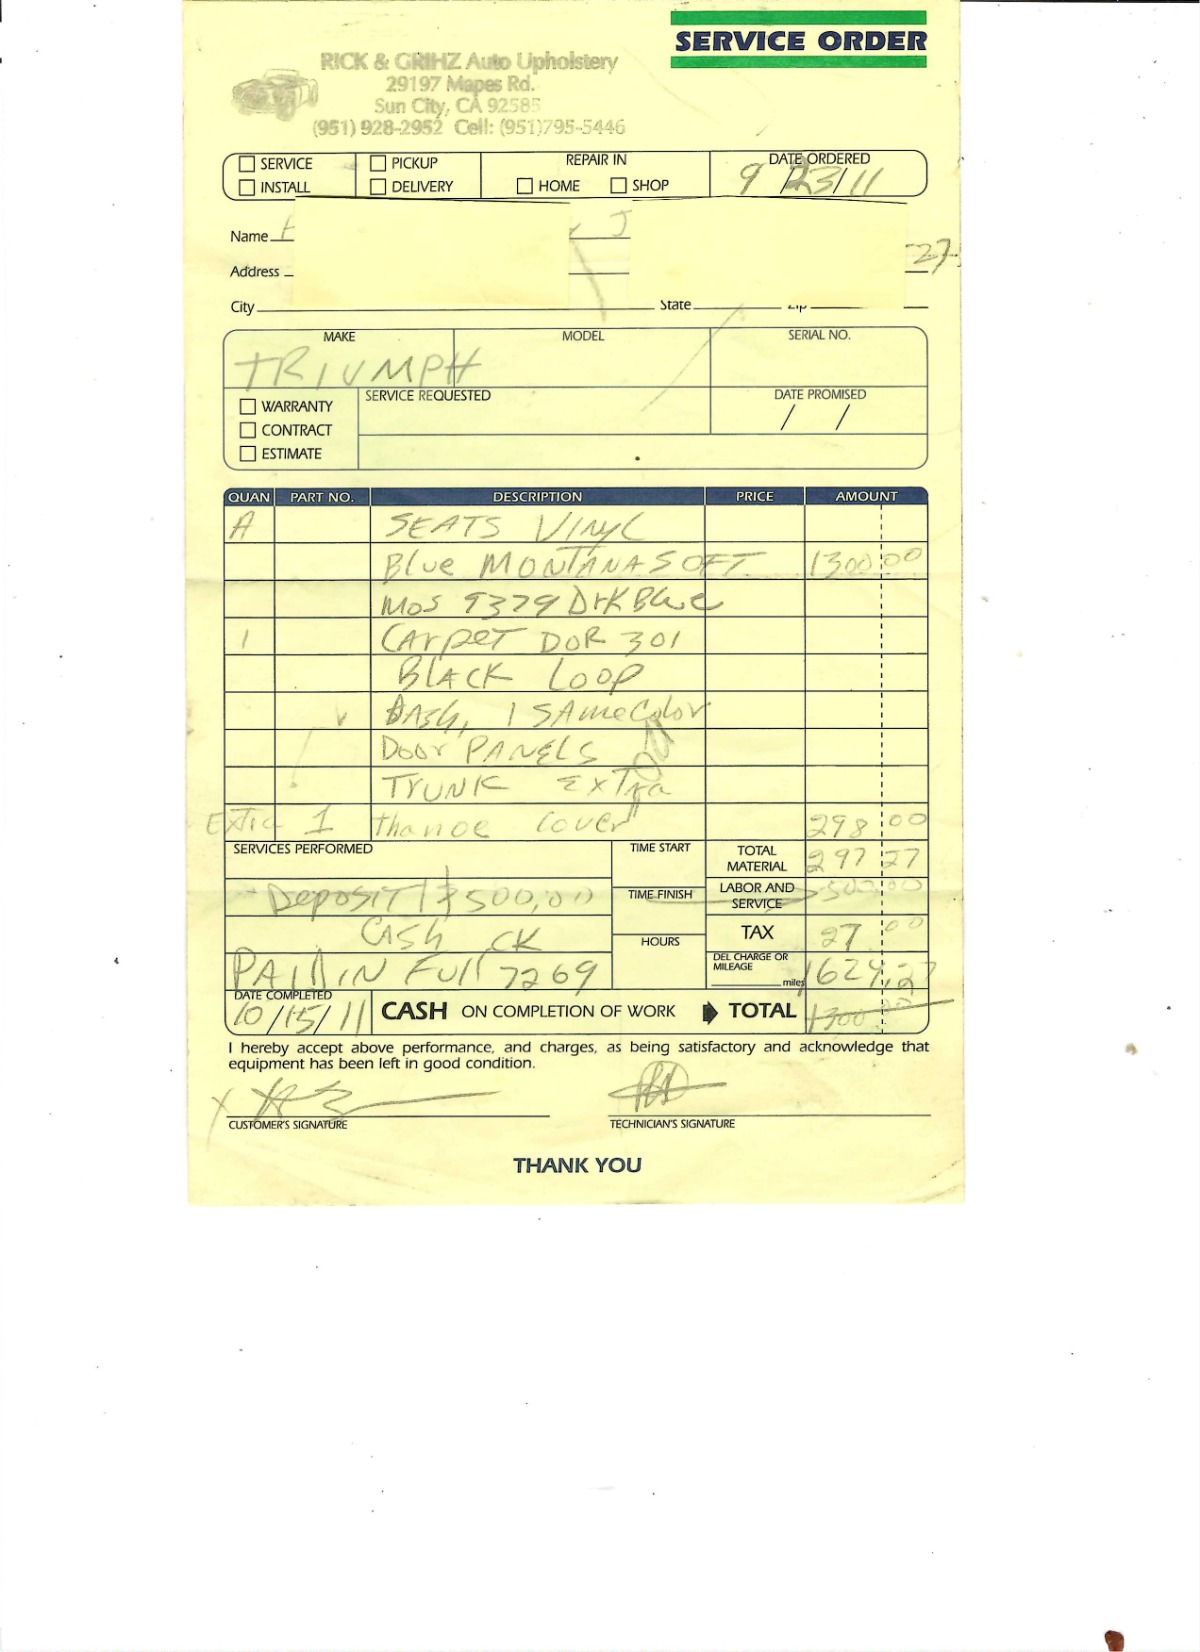 SERVICE ORDER
RICK & GRIHZ Auto Upholstery
29197 Mapes Rd.
Sun City, CA 92585
(951) 928-2952 Cell: (951)795-5446
SERVICE PICKUP REPAIR IN DATE ORDERED
INSTALL DELIVERY HOME SHOP 9/23/11
Name J
Address 27
City State Zip
MAKE MODEL SERIAL NO.
TRIUMPH
WARRANTY SERVICE REQUESTED DATE PROMISED
CONTRACT / /
ESTIMATE
QUAN PART NO. DESCRIPTION PRICE AMOUNT
A SEATS VINYL
Blue MONTANA SOFT 1300 00
MOS 9379 DrK Blue
1 CArpeT DOR 301
BLACK LOOP
DASh, 1 SAme Color
Door PANELS
TRUNK ExTra
Extra 1 Cover 298 00
SERVICES PERFORMED TIME START TOTAL MATERIAL 297 27
Deposit $500,00 TIME FINISH LABOR AND SERVICE 500.00
CASH CK HOURS TAX 27 00
PAID IN Full 7269 DEL CHARGE OR MILEAGE miles 1624,27
DATE COMPLETED
10/15/11 CASH ON COMPLETION OF WORK TOTAL 1300
I hereby accept above performance, and charges, as being satisfactory and acknowledge that
equipment has been left in good condition.
X
CUSTOMER'S SIGNATURE TECHNICIAN'S SIGNATURE
THANK YOU